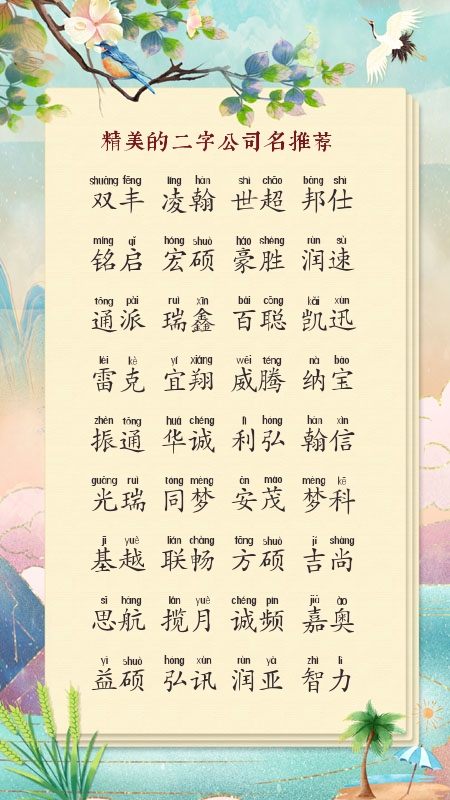 精美的二字公司名推荐
shuāng fēng líng hàn shì chāo bāng shì
双丰 凌翰 世超 邦仕
míng qǐ hóng shuò háo shèng rùn sù
铭启 宏硕 豪胜 润速
tōng pài ruì xīn bǎi cōng kǎi xùn
通派 瑞鑫 百聪 凯迅
léi kè yí xiáng wēi téng nà bǎo
雷克 宜翔 威腾 纳宝
zhèn tōng huá chéng lì hóng hàn xìn
振通 华诚 利弘 翰信
guāng ruì tóng mèng ān mào mèng kē
光瑞 同梦 安茂 梦科
jī yuè lián chàng fāng shuò jí shàng
基越 联畅 方硕 吉尚
sī háng lǎn yuè chéng pín jiā ào
思航 揽月 诚频 嘉奥
yì shuò hóng xùn rùn yà zhì lì
益硕 弘讯 润亚 智力